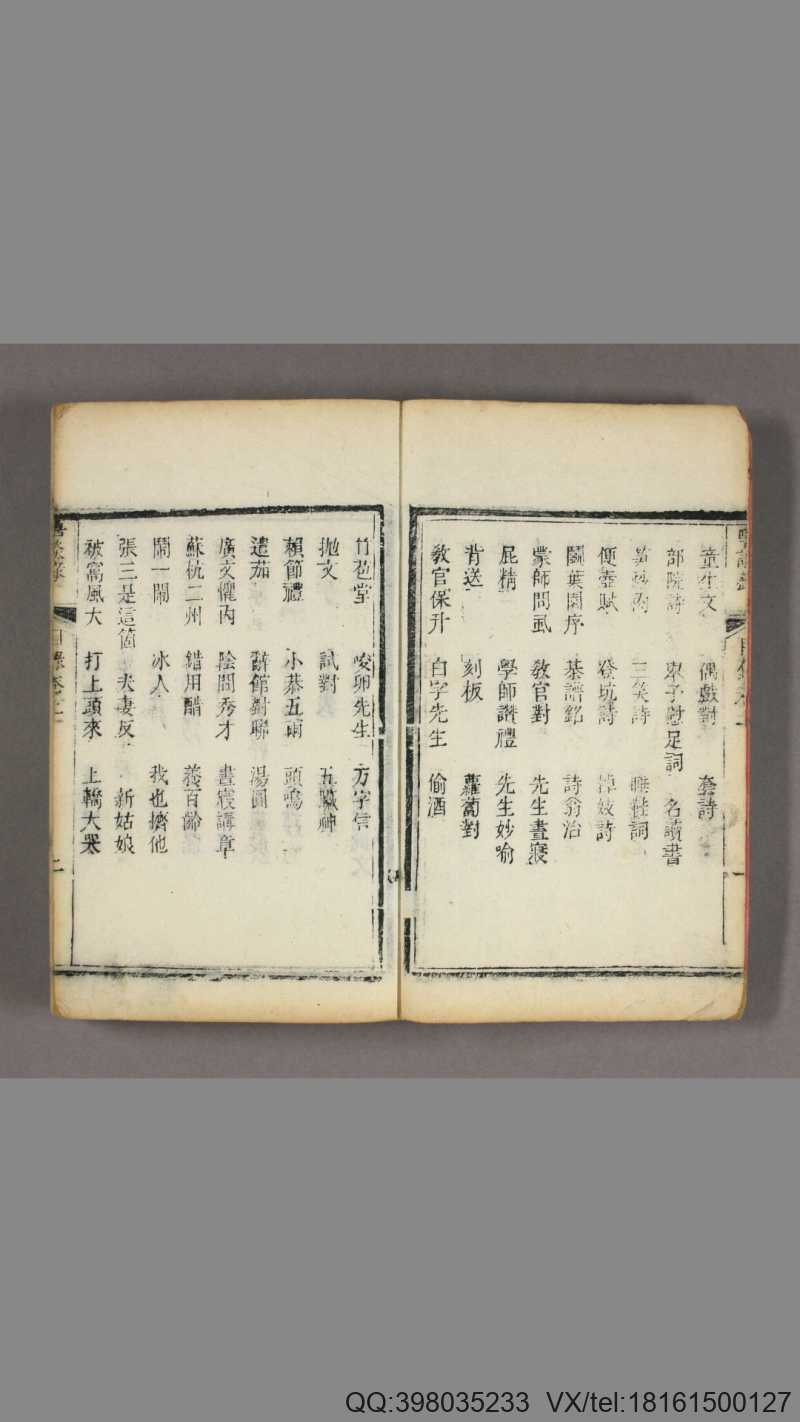 童生文 偶戲對 套詩
部院詩 舉子慰足詞 名讀書
三笑詩 睡鞋詞
便壺賦 登坑詩 嫖妓詩
鬭葉閣序 棊譜銘 詩翁治
蒙師問虱 教官對 先生晝寢
屁精 學師讚禮 先生妙喻
背送 刻板 蘿蔔對
教官保升 白字先生 偷酒
竹苞堂 咬卵先生 方字信
拋文 試對 五臟神
賴節禮 小恭五兩 頭鳴
遣茄 辭館對聯 湯圓
廣文懼內 陰間秀才 晝寢講章
蘇杭二州 錯用醋 義百齡
鬧一鬧 冰人 我也擠他
張三是這箇 夫妻反 新姑娘
被窩風大 打上頭來 上轎大哭
二
QQ:398035233 VX/tel:18161500127